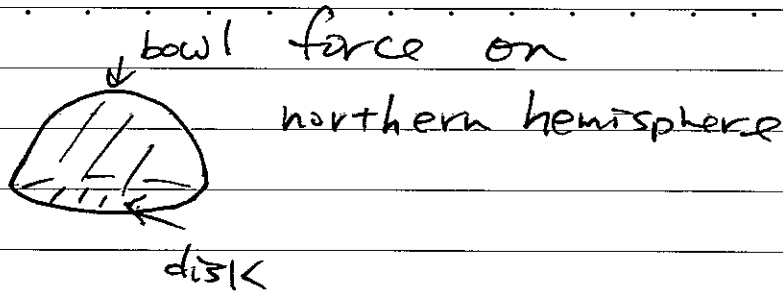 bowl force on
northern hemisphere
disk